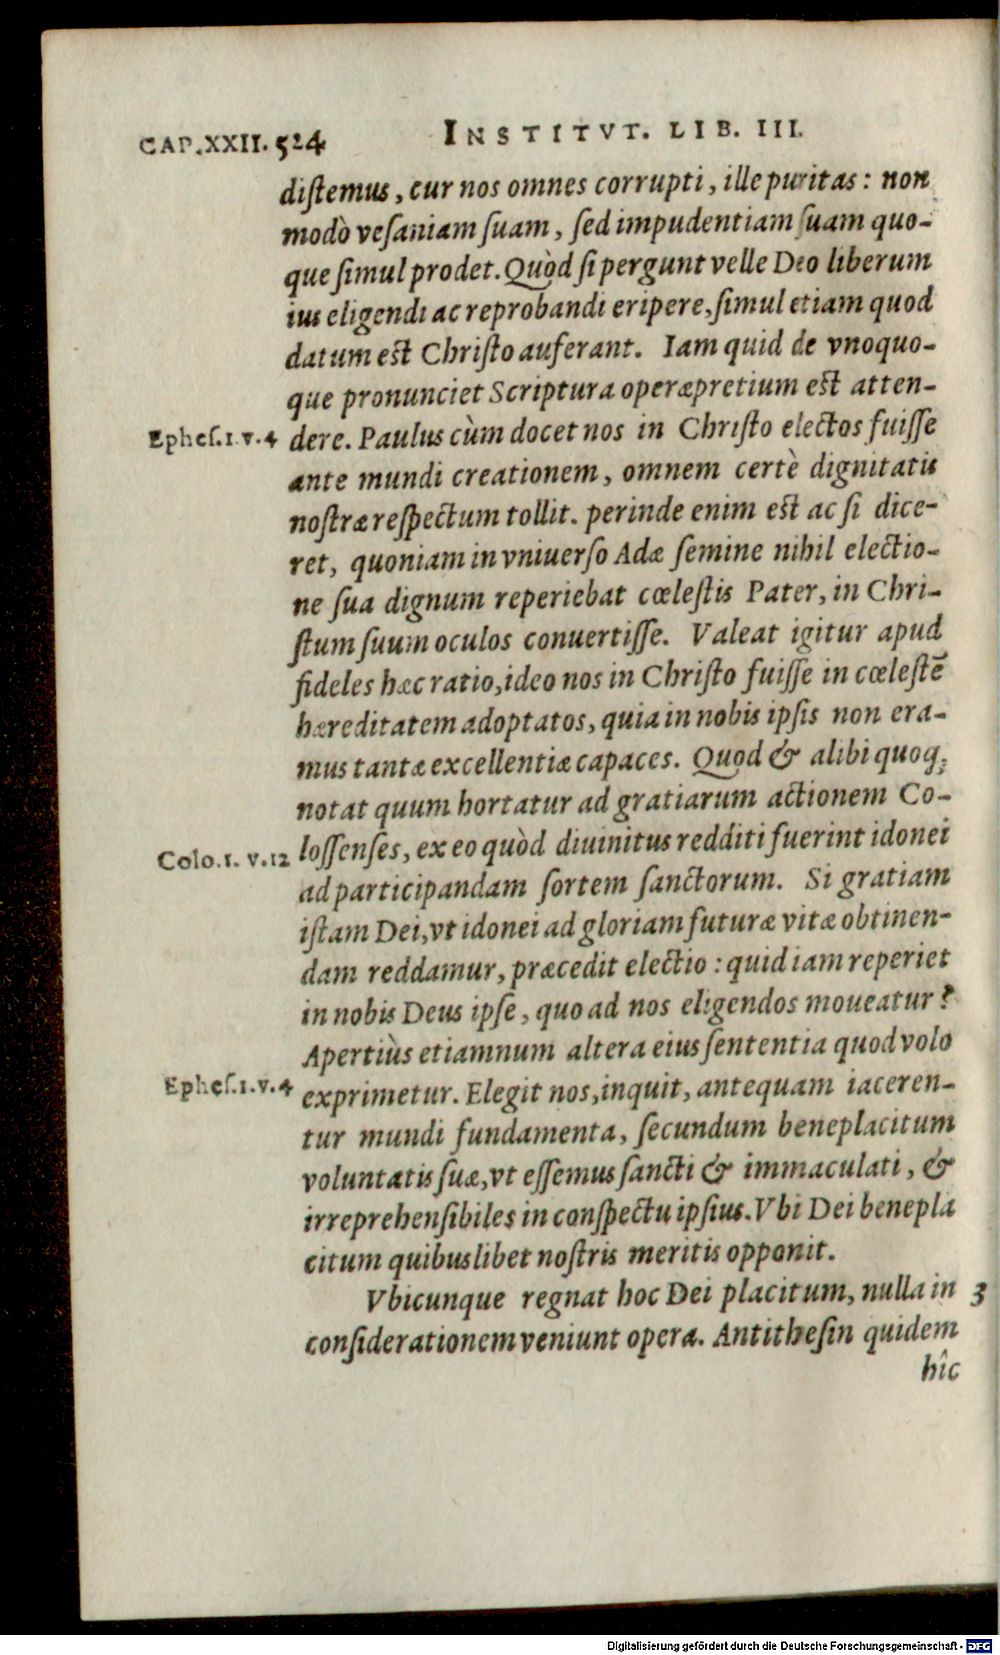 CAP.XXII. 524 INSTITVT. LIB. III.
diſtemus, cur nos omnes corrupti, ille puritas: non
modò veſaniam ſuam, ſed impudentiam ſuam quo-
que ſimul prodet. Quòd ſi pergunt velle Deo liberum
ius eligendi ac reprobandi eripere, ſimul etiam quod
datum eſt Chriſto auferant. Iam quid de vnoquo-
que pronunciet Scriptura operæpretium eſt atten-
Epheſ.1.v.4 dere. Paulus cùm docet nos in Chriſto electos fuiſſe
ante mundi creationem, omnem certè dignitatis
noſtræ reſpectum tollit. perinde enim eſt ac ſi dice-
ret, quoniam in vniuerſo Adæ ſemine nihil electio-
ne ſua dignum reperiebat cœleſtis Pater, in Chri-
ſtum ſuum oculos conuertiſſe. Valeat igitur apud
fideles hæc ratio, ideo nos in Chriſto fuiſſe in cœleſtē
hæreditatem adoptatos, quia in nobis ipſis non era-
mus tantæ excellentiæ capaces. Quod & alibi quoq;
notat quum hortatur ad gratiarum actionem Co-
Colo.1. v.12 loſſenſes, ex eo quòd diuinitus redditi fuerint idonei
ad participandam ſortem ſanctorum. Si gratiam
iſtam Dei, vt idonei ad gloriam futuræ vitæ obtinen-
dam reddamur, præcedit electio: quid iam reperiet
in nobis Deus ipſe, quo ad nos eligendos moueatur?
Apertiùs etiamnum altera eius ſententia quod volo
Epheſ.1.v.4 exprimetur. Elegit nos, inquit, antequam iaceren-
tur mundi fundamenta, ſecundum beneplacitum
voluntatis ſuæ, vt eſſemus ſancti & immaculati, &
irreprehenſibiles in conſpectu ipſius. Vbi Dei benepla
citum quibuslibet noſtris meritis opponit.
Vbicunque regnat hoc Dei placitum, nulla in 3
conſiderationem veniunt opera. Antitheſin quidem
hîc
Digitalisierung gefördert durch die Deutsche Forschungsgemeinschaft - DFG